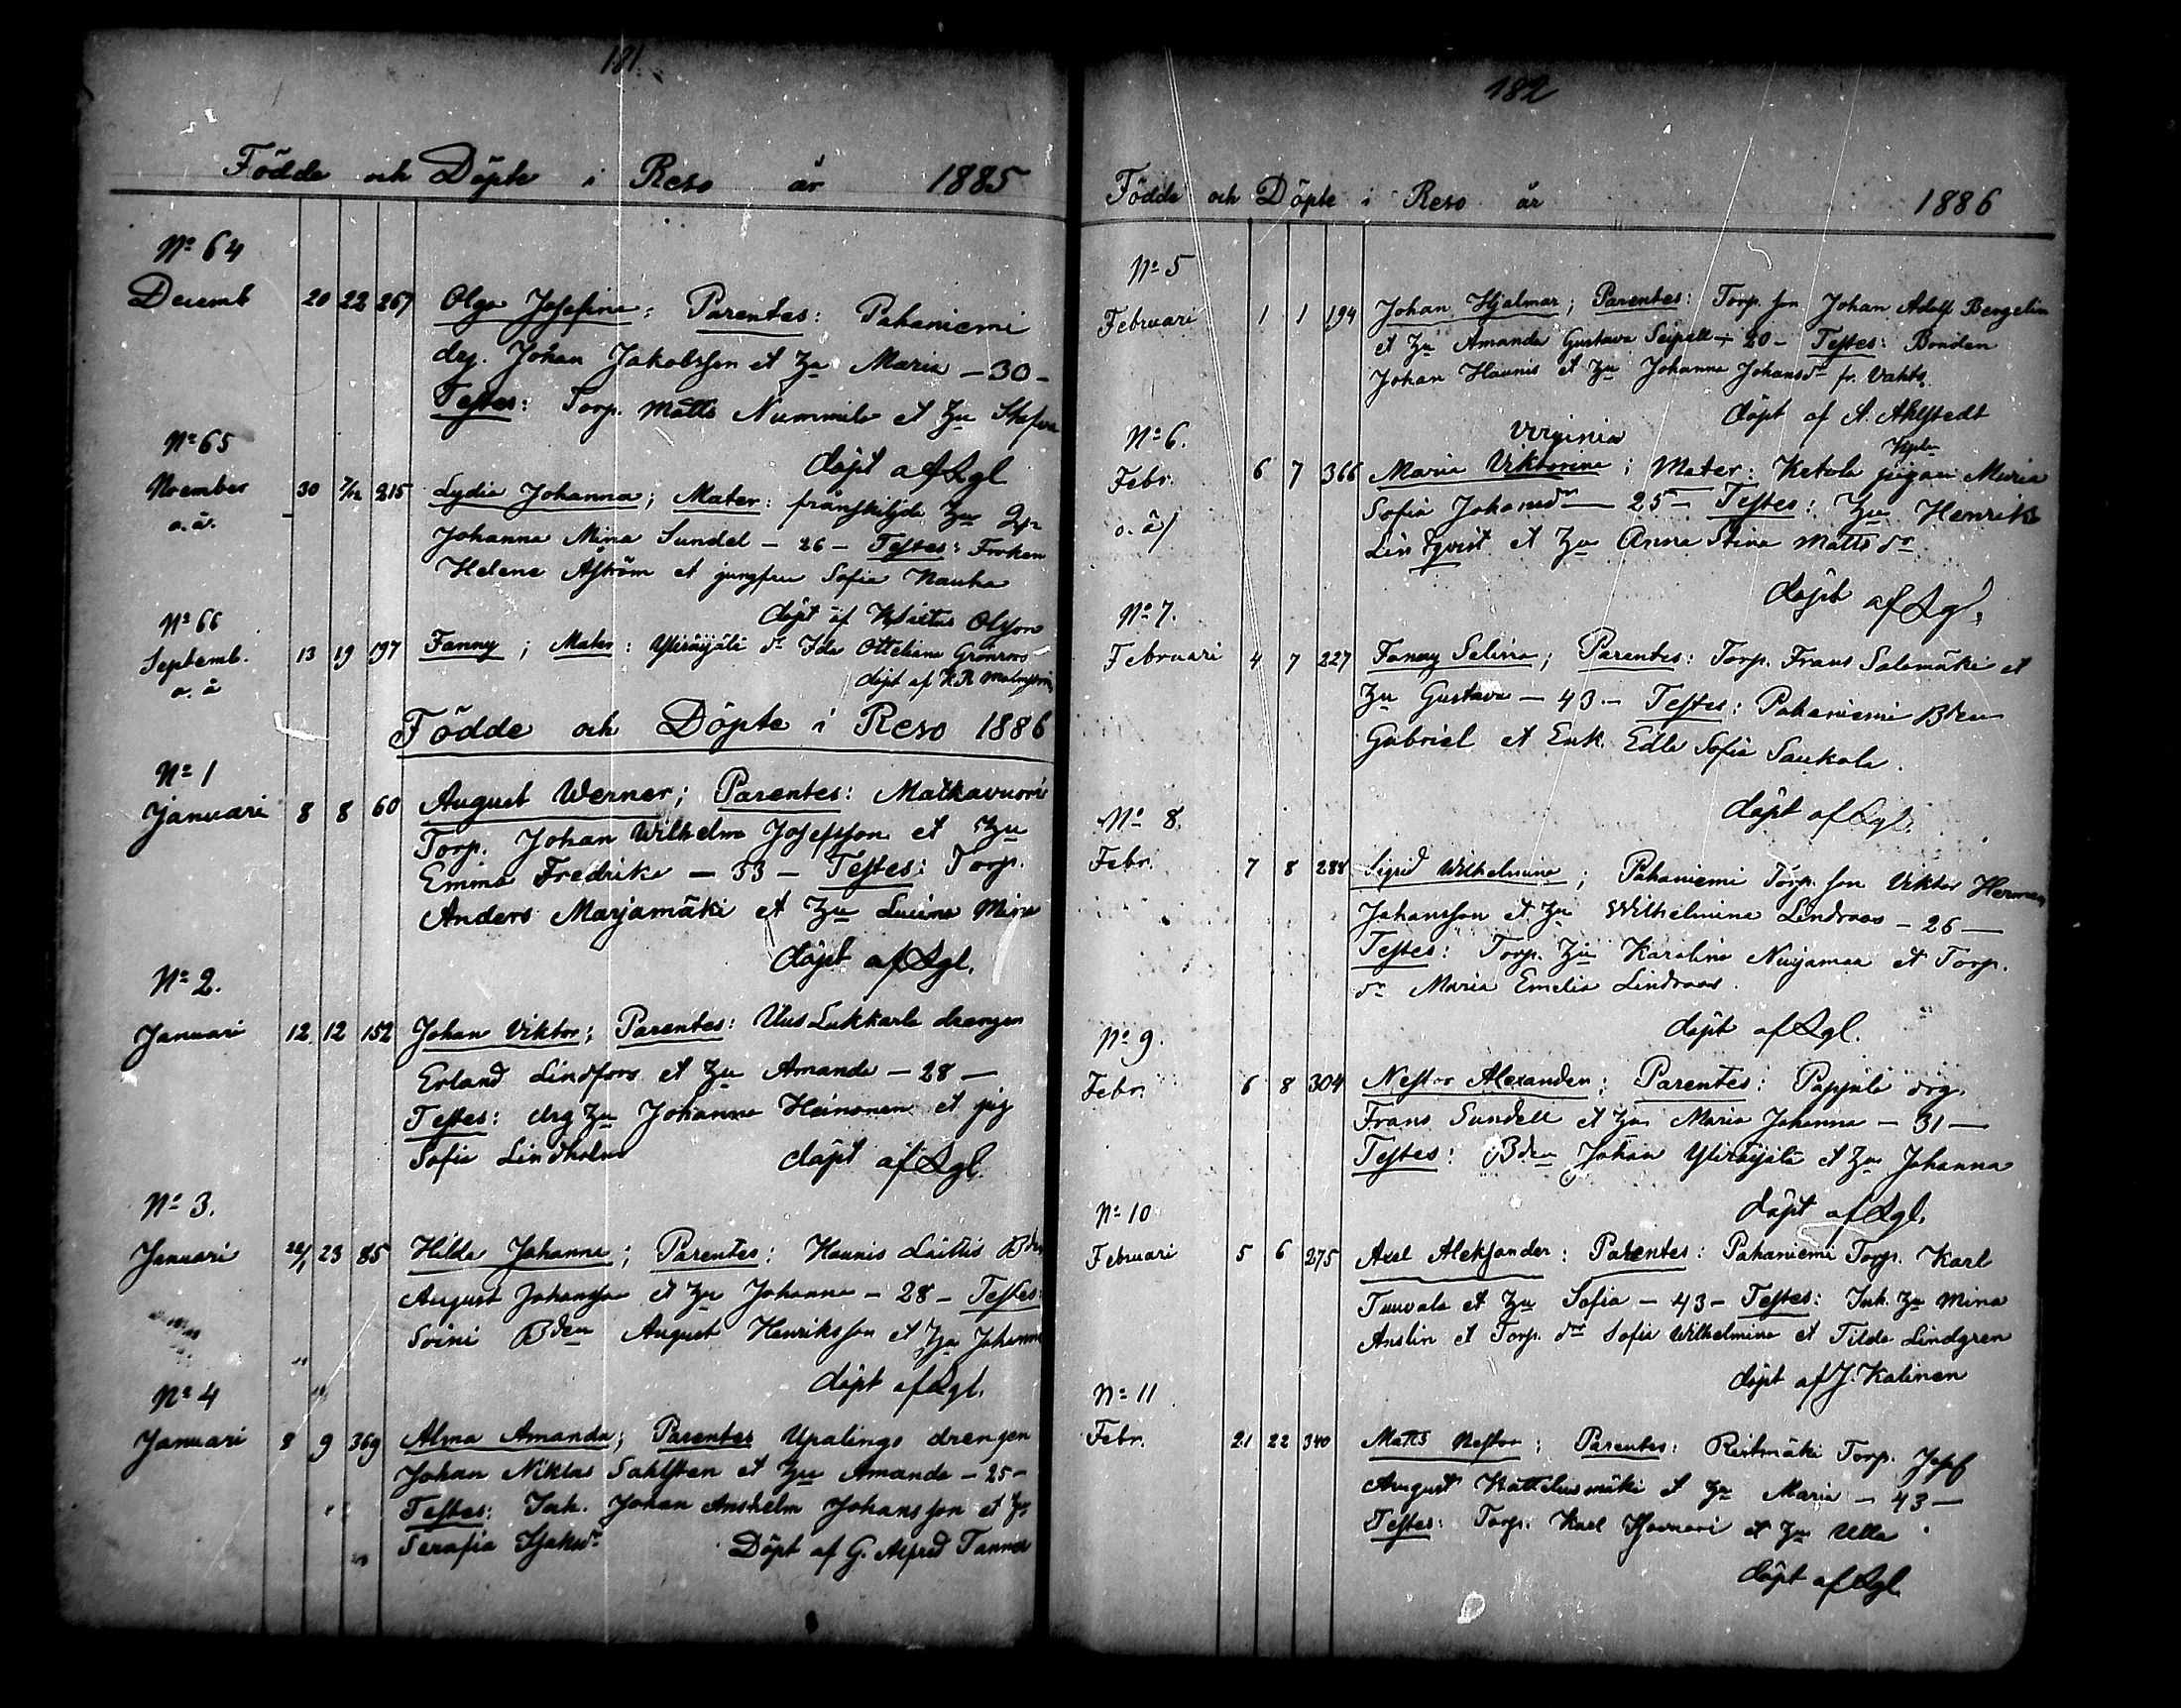 181
Födde och Döpte i Reso år 1885
No 64
Decemb 20 22 267 Olga Josefina; Parentes: Pahaniemi
drg. Johan Jakobsson et Hu Maria - 30 -
Testes: Torp. Matts Nummila et Hu Stefva
döpt af Lgl
No 65
November 30 7/12 215 Lydia Johanna; Mater: frånskiljda Hu
o.å. Johanna Mina Sundel - 26 - Testes: Fröken
Helene Åström et jungfru Sofia Nauha
döpt af Olsson
No 66
Septemb. 13 19 197 Fanny; Mater: Yliräijälä dr Ida Ottiliana Grönroos
o.å döpt af K.R. Malmström
Födde och Döpte i Reso 1886
No 1
Januari 8 8 60 August Werner; Parentes: Matkavuori
Torp. Johan Wilhelm Josefsson et Hu
Emma Fredrika - 33 - Testes: Torp.
Anders Marjamäki et Hu Mina
döpt af Lgl.
No 2.
Januari 12 12 152 Johan Viktor; Parentes: Uus Lukkarla drengen
Erland Lindfors et Hu Amanda - 28 -
Testes: drg Hu Johanna Heinonen et pig
Sofia Lindholm döpt af Lgl.
No 3.
Januari 22/1 23 85 Hilda Johanna; Parentes: Haunis Laittis Bden
August Johansson et Hu Johanna - 28 - Testes:
Soini Bden August Henriksson et Hu Johanna
döpt af Lgl.
No 4
Januari 8 9 369 Alma Amanda; Parentes Upalingo drengen
Johan Niklas Sahlsten et Hu Amanda - 25 -
Testes: Inh. Johan Anshelm Johansson et Hu
Serafia Isaksdr Döpt af G. Alfred Tanner
182
Födde och Döpte i Reso år 1886
No 5
Februari 1 1 194 Johan Hjalmar; Parentes: Torp. son Johan Adolf Bergelin
et Hu Amanda Gustava Seipell - 20 - Testes: Bonden
Johan Haunis et Hu Johanna Johansdr fr. Vahto
döpt af A. Ahlstedt
No 6. Virginia
Febr. 6 7 366 Maria Viktorina; Mater: Ketola pigan Maria
o.å) Sofia Johansdr - 25 - Testes: Hu Henrik
Lindqvist et Hu Anna Stina Mattsdr
döpt af Lgl.
No 7.
Februari 4 7 227 Fanny Selina; Parentes: Torp. Frans Salomäki et
Hu Gustava - 43 - Testes: Pahaniemi Bden
Gabriel et Enk. Edla Sofia Saukola.
döpt af Lgl.
No 8.
Febr. 7 8 288 Sigrid Wilhelmina; Pahaniemi Torp. son Viktor Herman
Johansson et Hu Wilhelmina Lindroos - 26 -
Testes: Torp. Hu Karolina Nuijamaa et Torp.
dr Maria Emelia Lindroos.
döpt af Lgl.
No 9.
Febr. 6 8 304 Nestor Alexander; Parentes: Pappila drg.
Frans Sundell et Hu Maria Johanna - 31 -
Testes: Bden Johan Yliräijälä et Hu Johanna
döpt af Lgl.
No 10
Februari 5 6 275 Axel Aleksander: Parentes: Pahaniemi Torp. Karl
Tuuvala et Hu Sofia - 43 - Testes: Inh. Hu Mina
Anslin et Torp. dr Sofia Wilhelmina et Tilda Lindgren
döpt af J. Kalinen
No 11
Febr. 21 22 340 Matts Nestor; Parentes: Reitmäki Torp. Josef
August Kattelusmäki et Hu Maria - 43 -
Testes: Torp. Karl Isovuori et Hu Ulla
döpt af Lgl